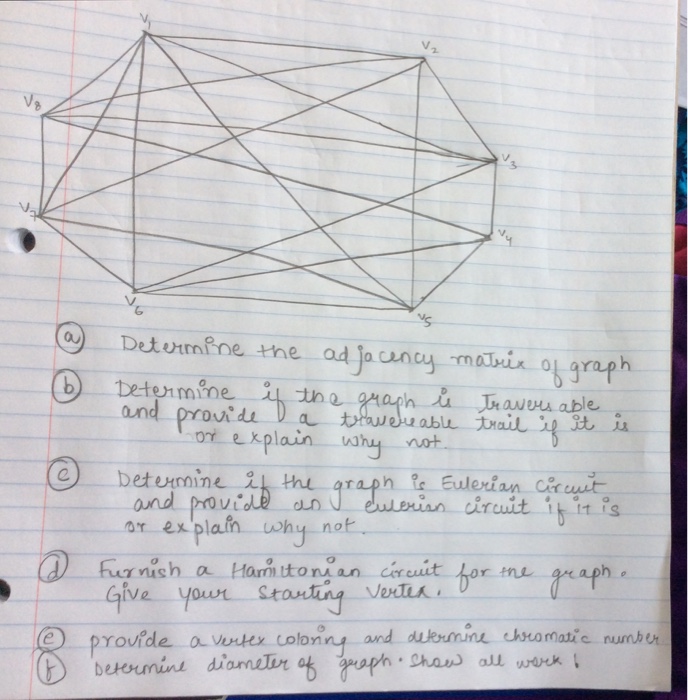 V1
V2
V8
V3
V7
V4
V6
V5
(a) Determine the adjacency matrix of graph
(b) Determine if the graph is Traversable
and provide a traverseable trail if it is
or explain why not.
(c) Determine if the graph is Eulerian circuit
and provide an eulerian circuit if it is
or explain why not.
(d) Furnish a Hamiltonian circuit for the graph.
Give your starting vertex.
(e) provide a vertex coloring and determine chromatic number
(f) Determine diameter of graph. Show all work!